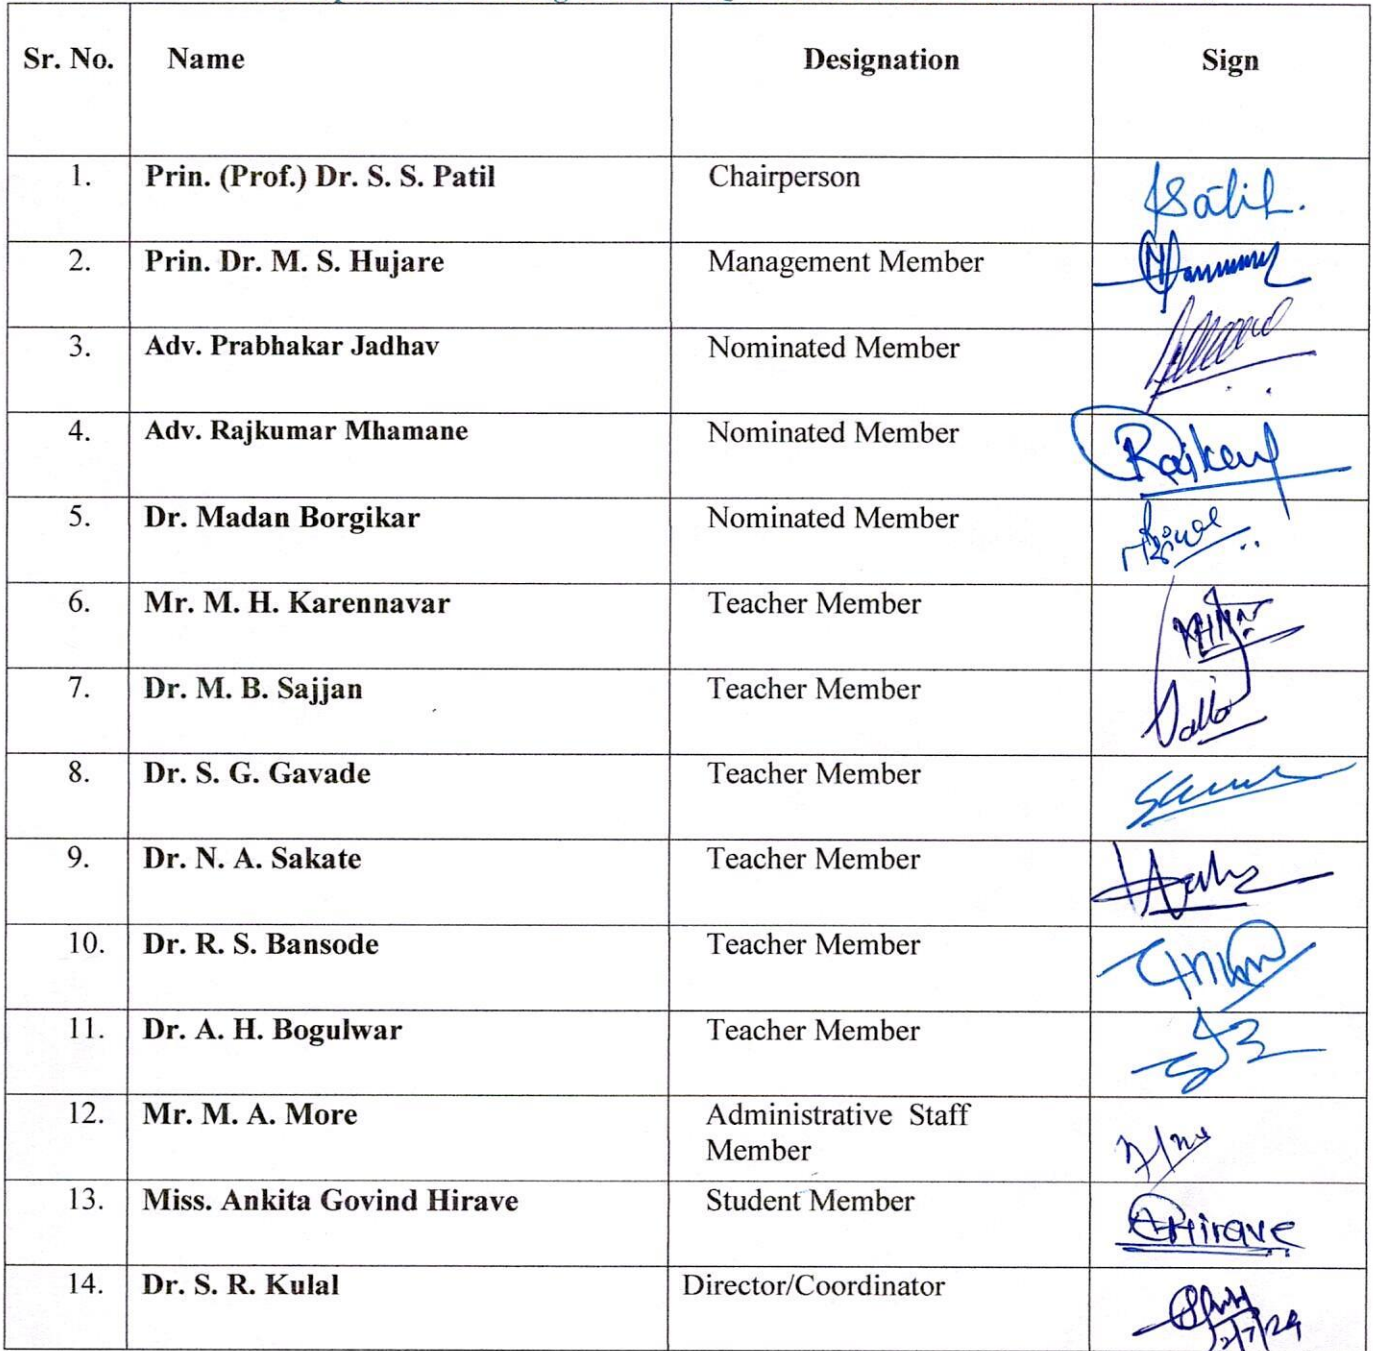 Sr. No. Name Designation Sign
1. Prin. (Prof.) Dr. S. S. Patil Chairperson
2. Prin. Dr. M. S. Hujare Management Member
3. Adv. Prabhakar Jadhav Nominated Member
4. Adv. Rajkumar Mhamane Nominated Member
5. Dr. Madan Borgikar Nominated Member
6. Mr. M. H. Karennavar Teacher Member
7. Dr. M. B. Sajjan Teacher Member
8. Dr. S. G. Gavade Teacher Member
9. Dr. N. A. Sakate Teacher Member
10. Dr. R. S. Bansode Teacher Member
11. Dr. A. H. Bogulwar Teacher Member
12. Mr. M. A. More Administrative Staff
Member
13. Miss. Ankita Govind Hirave Student Member AHirave
14. Dr. S. R. Kulal Director/Coordinator
2/7/24